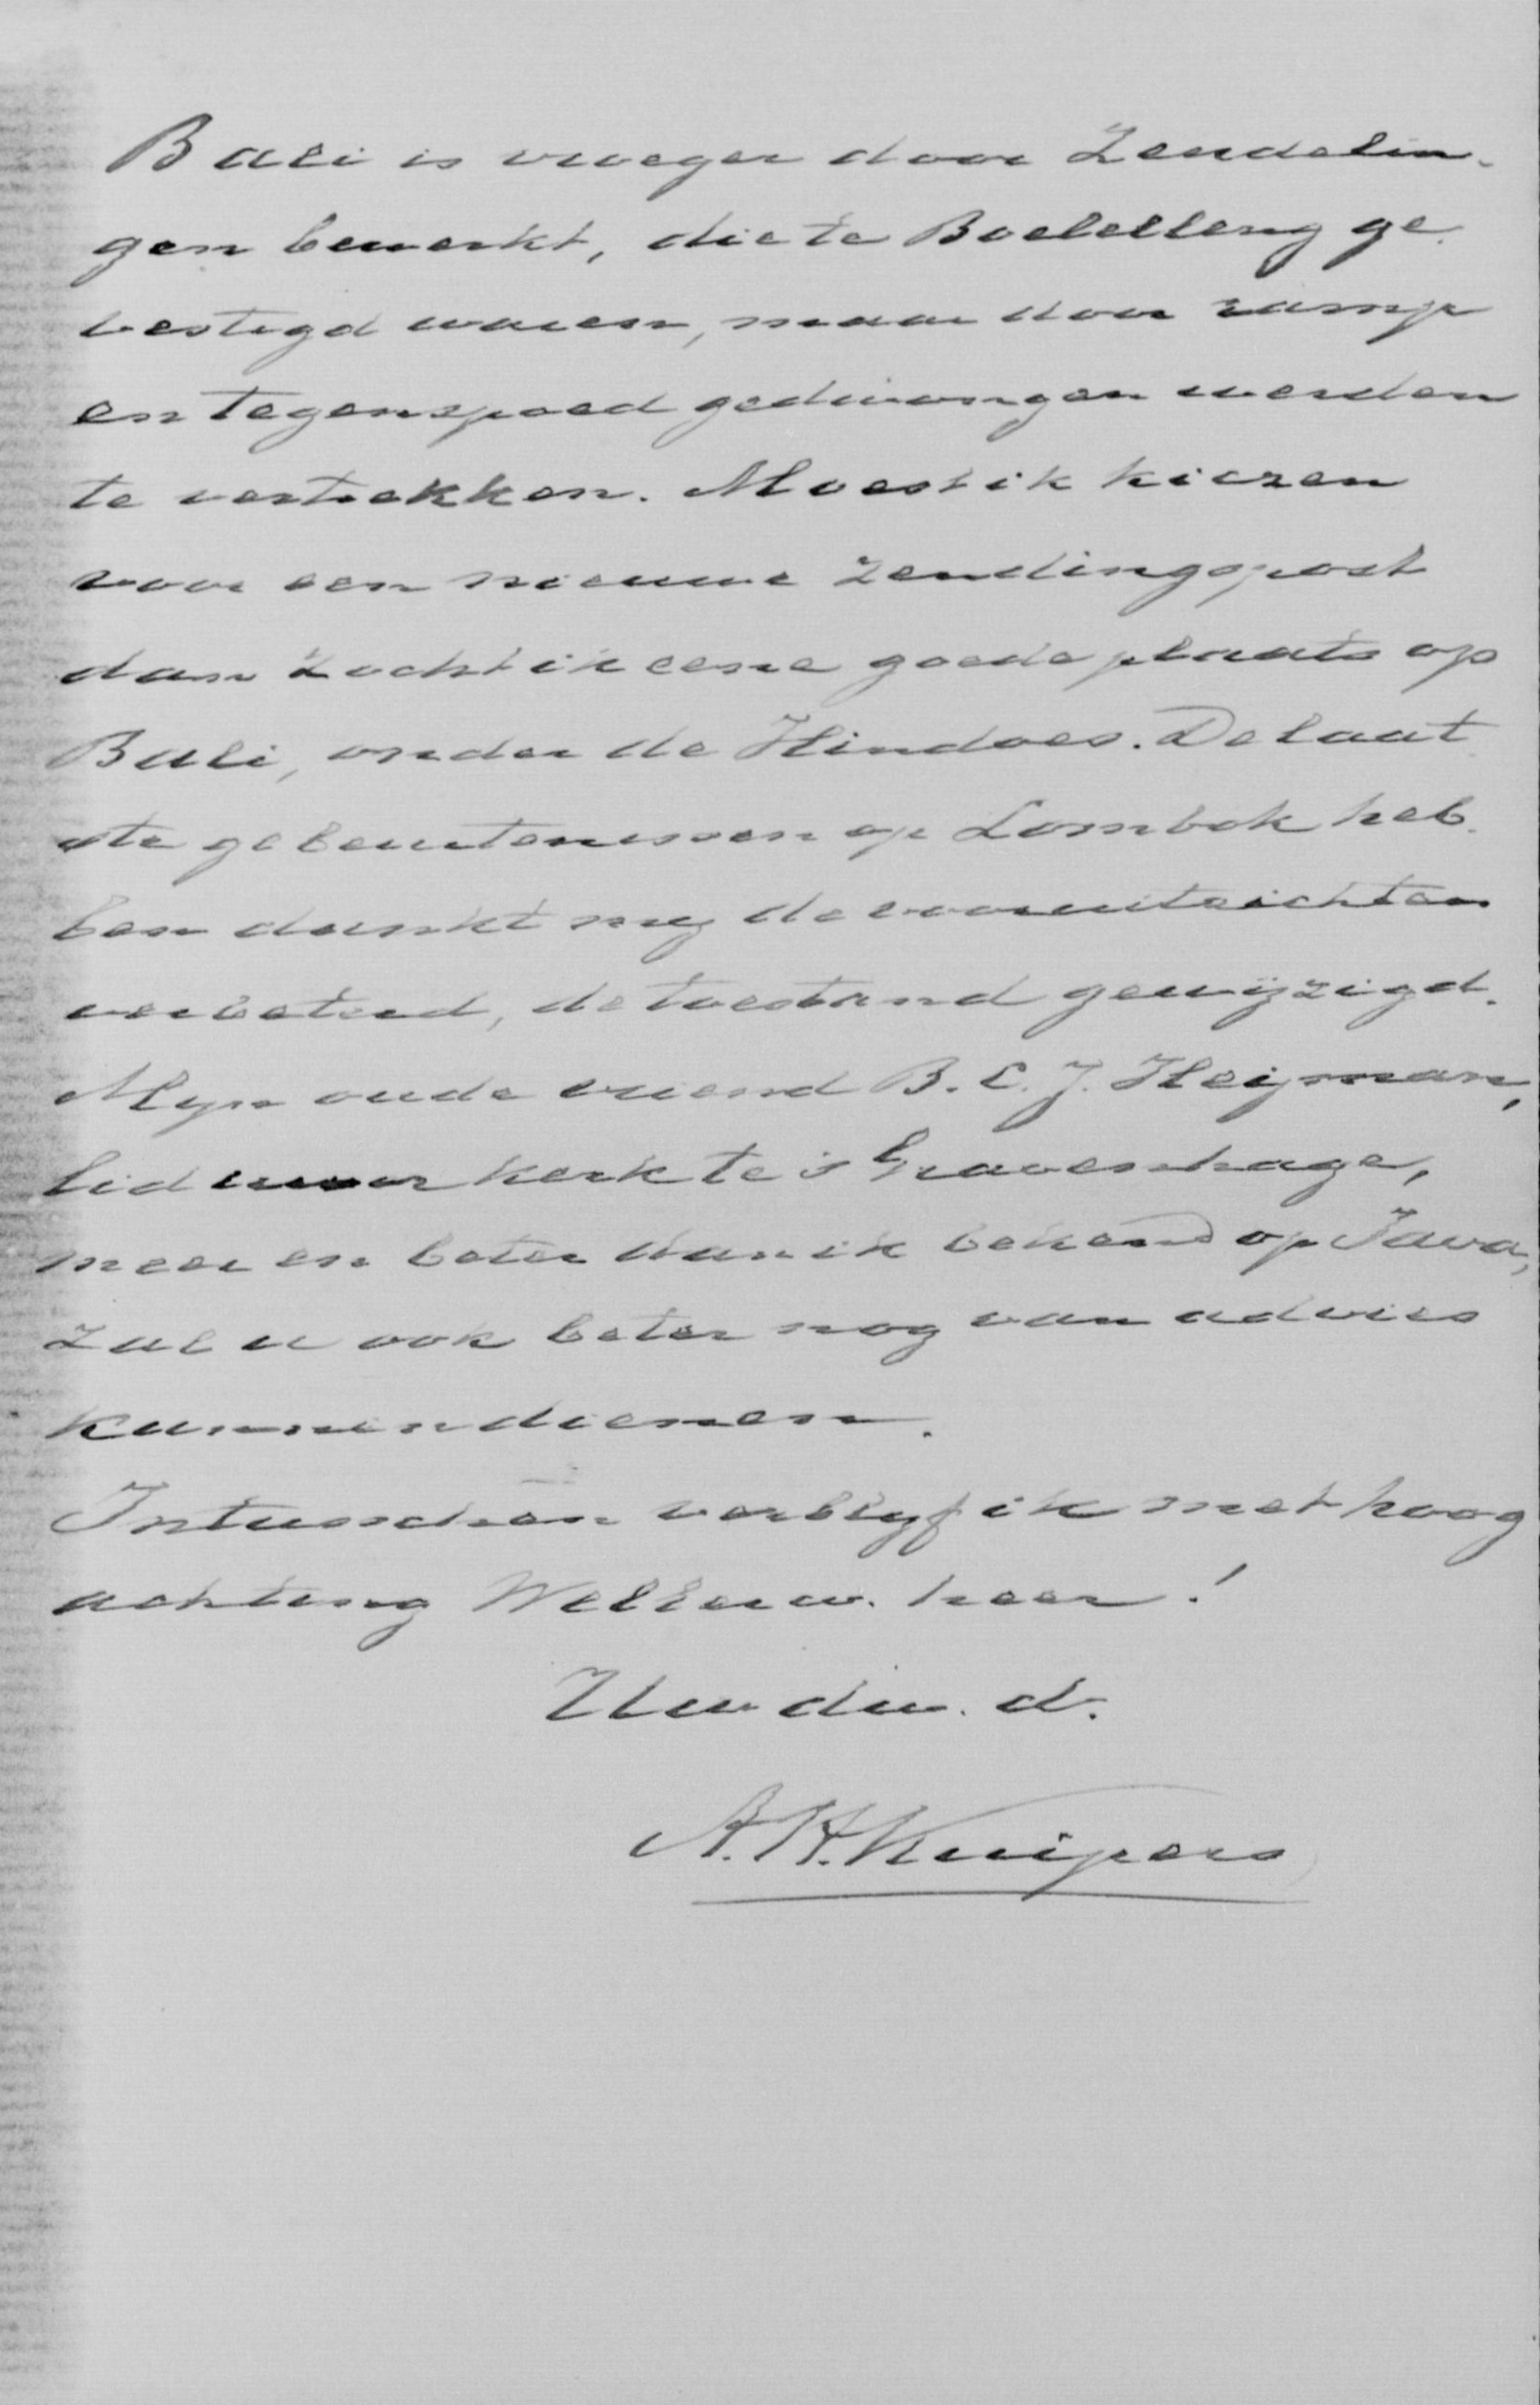 Bali is vroeger door Zendelin-
gen bewerkt, die te Boelelleng ge-
vestigd waren, maar door ramp
en tegenspoed gedwongen werden
te vertrekken. Moest ik kiezen
voor een nieuwe zendingspost
dan zocht ik eene goede plaats op
Bali, onder de Hindoes. De laat
ste gebeurtenissen op Lombok heb-
ben dunkt mij de vooruitzichten
verbeterd, de toestand gewijzigd.
Mijn oude vriend B.C.J. Heijman,
lid uwer kerk te 's Gravenhage,
meer en beter dan ik bekend op Java,
zal u ook beter nog van advies
kunnen dienen.
Intusschen verblijf ik met hoog
achting WelEerw. heer!
Uw dw. d.
A. H. Kuipers